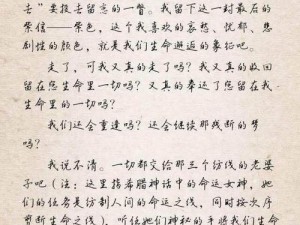 去”要投去留恋的一瞥。我留下这一封最后的
紫信——紫色，这个我喜欢的哀愁、忧郁、悲
剧性的颜色，就是我们生命邂逅的象征吧。
走了，可我又真的走了吗？我又真的收回
留在您生命里一切吗？又真的奉还了您留在我
生命里的一切吗？
我们还会重逢吗？还会继续那残断的梦
吗？
我说不清。一切都交给那三个纺线的老婆
子吧（注：这里指希腊神话中的命运女神，她
们的任务是纺制人间的命运之线，同时按次序
剪断生命之线），听任她们神秘的手将我们生命